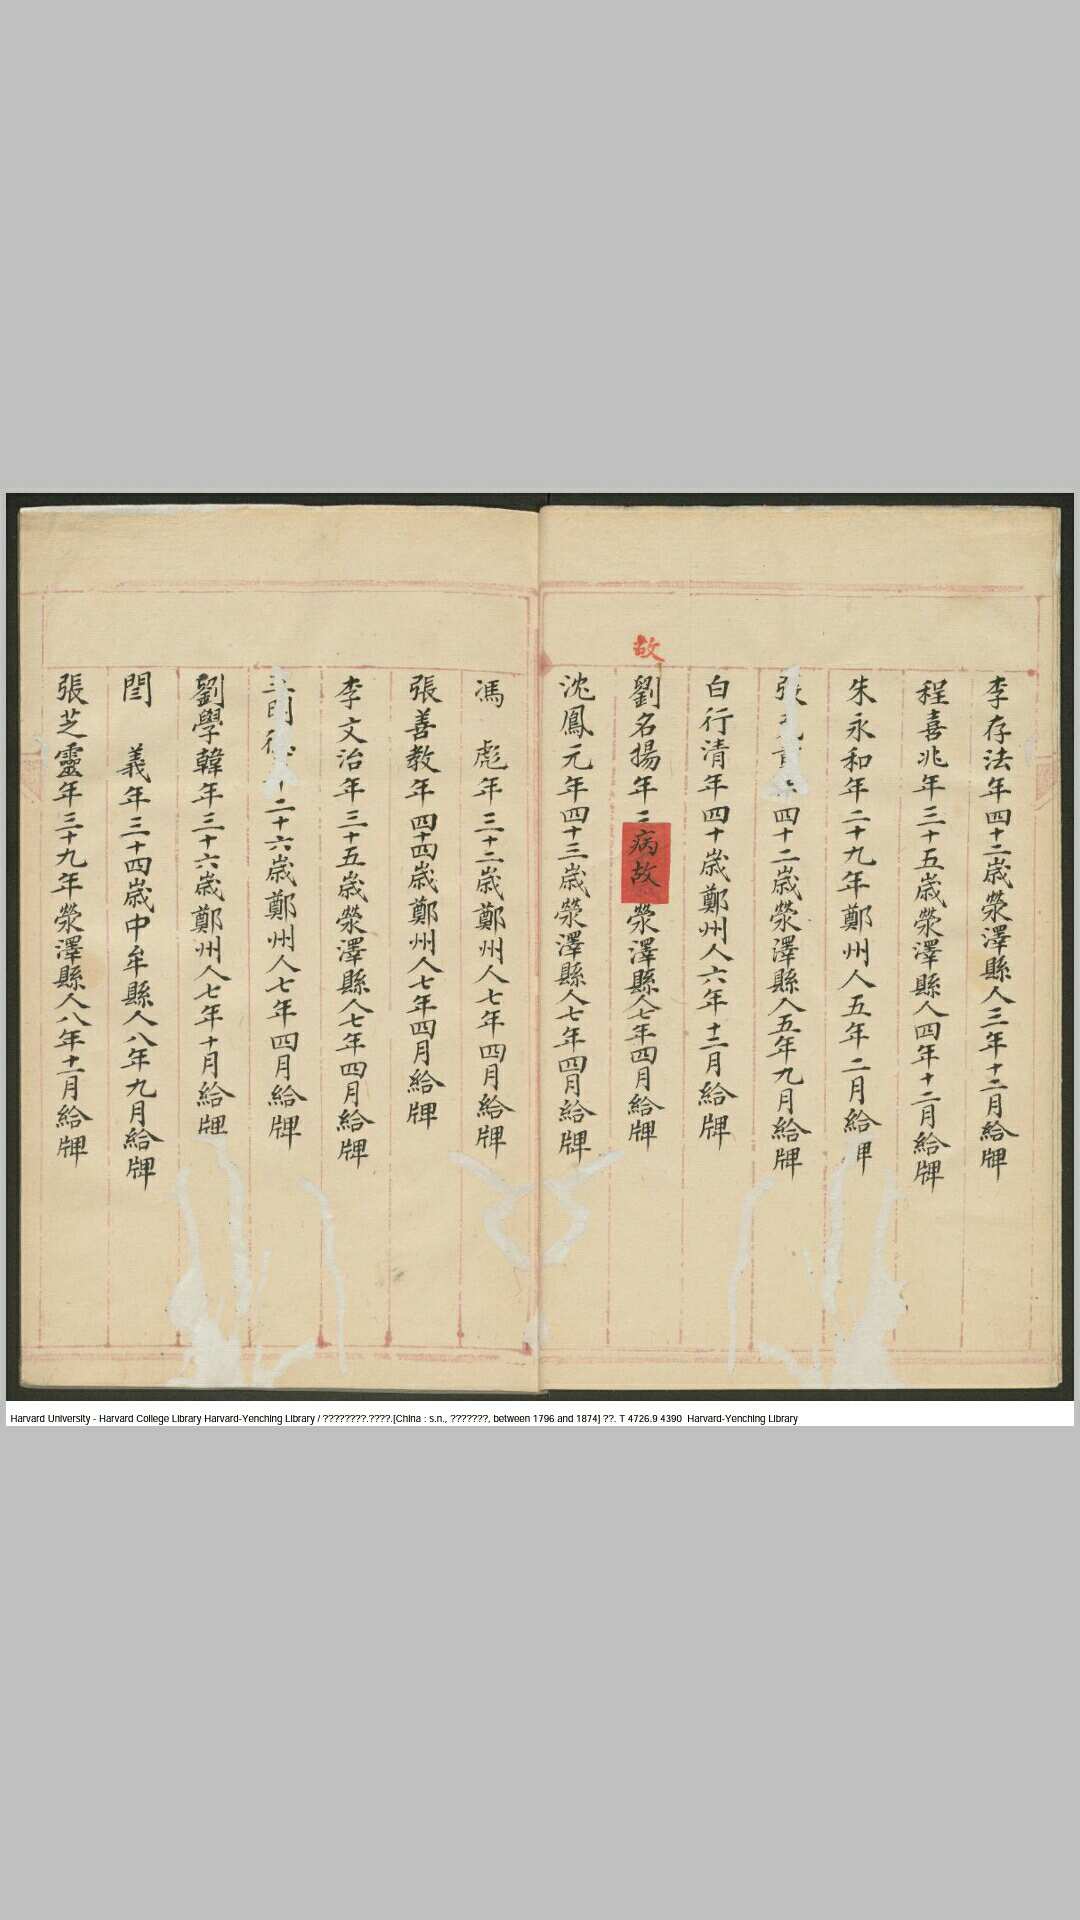 李存法年四十二歲滎澤縣人三年十二月給牌
程喜兆年三十五歲滎澤縣人四年十二月給牌
朱永和年二十九年鄭州人五年二月給牌
張 年四十二歲滎澤縣人五年九月給牌
白行清年四十歲鄭州人六年十二月給牌
故
劉名揚年三 滎澤縣人七年四月給牌
病故
沈鳳元年四十三歲滎澤縣人七年四月給牌
馮彪年三十二歲鄭州人七年四月給牌
張善教年四十四歲鄭州人七年四月給牌
李文治年三十五歲滎澤縣人七年四月給牌
二十六歲鄭州人七年四月給牌
劉學韓年三十六歲鄭州人七年十月給牌
閆義年三十四歲中牟縣人八年九月給牌
張芝靈年三十九年滎澤縣人八年十一月給牌
Harvard University - Harvard College Library Harvard-Yenching Library / ????????.????.[China : s.n., ???????, between 1796 and 1874] ??. T 4726.9 4390 Harvard-Yenching Library